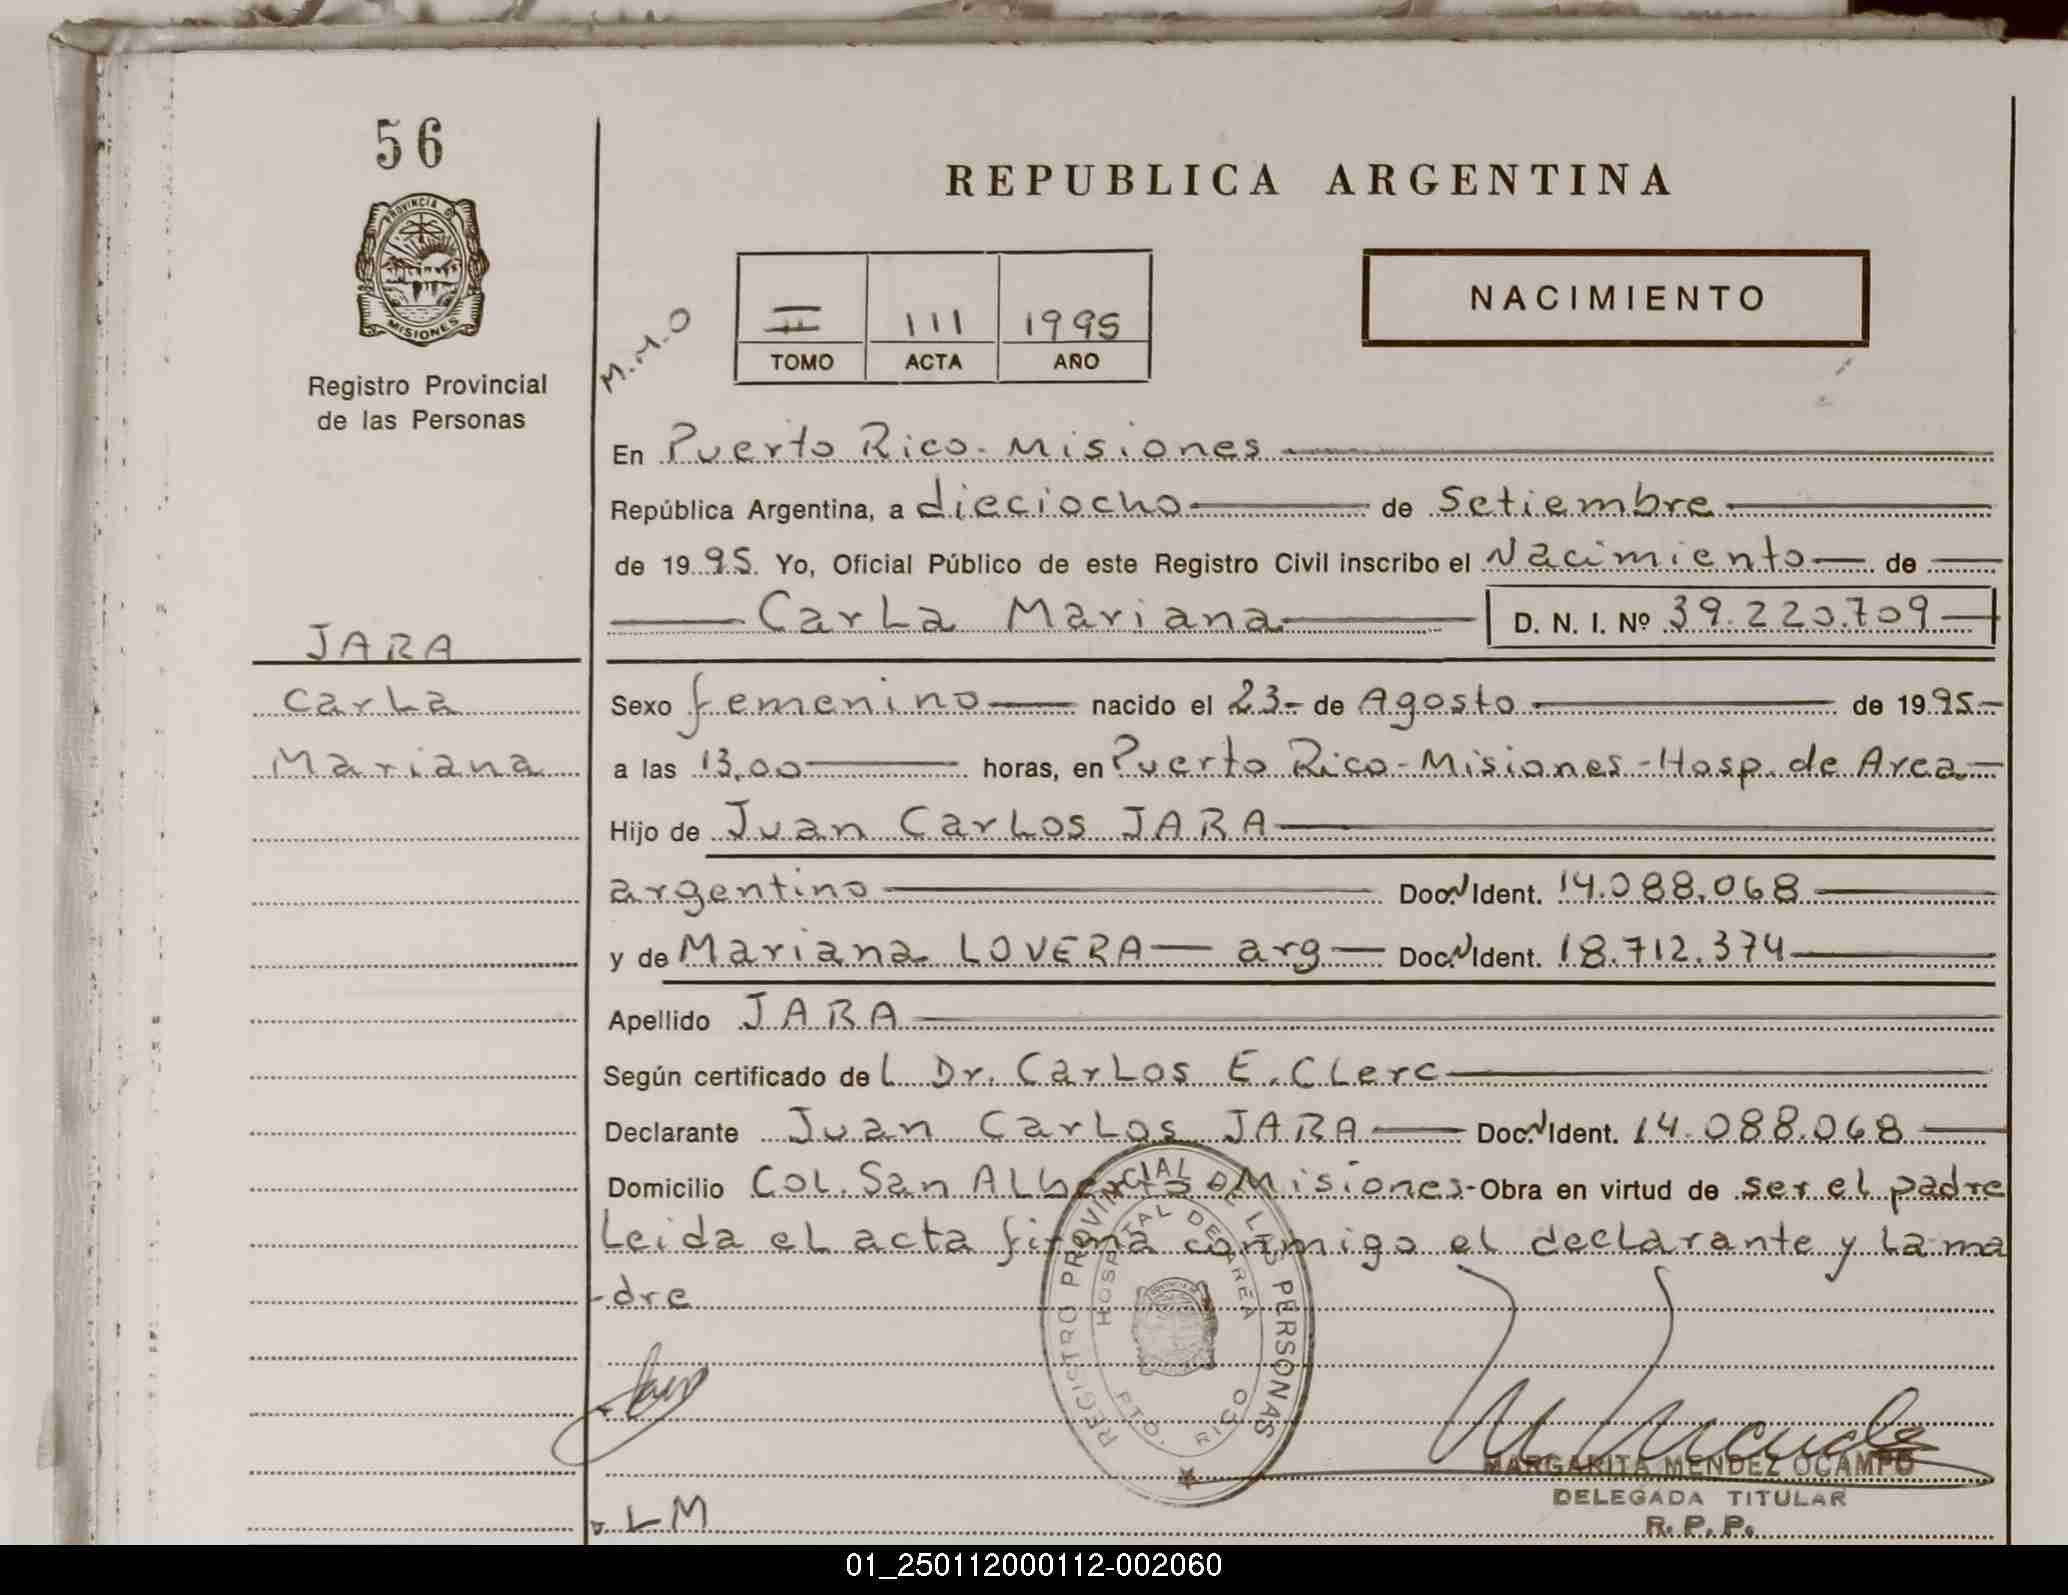 56
REPUBLICA ARGENTINA
PROVINCIA DE
MISIONES
NACIMIENTO
II 111 1995
TOMO ACTA AÑO
M.M.O
Registro Provincial
de las Personas
En Puerto Rico - Misiones
República Argentina, a dieciocho de Setiembre
de 1995. Yo, Oficial Público de este Registro Civil inscribo el Nacimiento de
Carla Mariana D. N. I. Nº 39.220.709
JARA
Carla
Mariana
Sexo femenino nacido el 23- de Agosto de 1995-
a las 13,00 horas, en Puerto Rico - Misiones - Hosp. de Area
Hijo de Juan Carlos JARA
argentino Doc. N Ident. 14.088.068
y de Mariana LOVERA - arg - Doc. N Ident. 18.712.374
Apellido JARA
Según certificado del Dr. Carlos E. Clerc
Declarante Juan Carlos JARA Doc. N Ident. 14.088.068
Domicilio Col. San Alberto - Misiones - Obra en virtud de ser el padre
Leida el acta firma conmigo el declarante y la ma
-dre
REGISTRO PROVINCIAL DE LAS PERSONAS
HOSPITAL DE AREA
PTO. RICO
MARGARITA MENDEZ OCAMPO
DELEGADA TITULAR
R. P. P.
LM
01_250112000112-002060